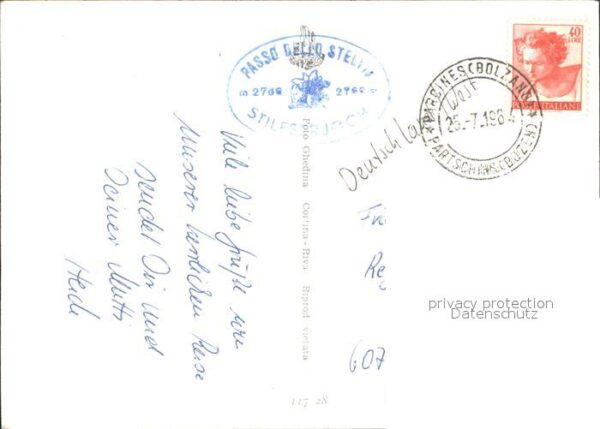 PASSO DELLO STELVIO
m 2766 2766 m
STILFSERJOCH
40
LIRE
POSTE ITALIANE
PARCINES (BOLZANO)
25.-7.1964
PARTSCHINS (BOZEN)
West
Deutschlan
Viele liebe Grüße von
unserer herrlichen Reise
sendet Dir und
Deiner Mutti
Heidi
Foto Ghedina Cortina - Riva Riprod vietata
Re
607
117 28
privacy protection
Datenschutz